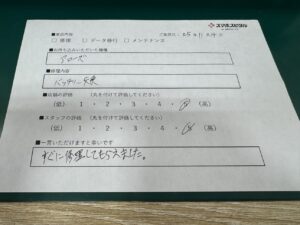 スマホスピタル
■来店内容
□ 修理　□ データ移行　□ メンテナンス
■お持ち込みいただいた機種
アローズ
■修理内容
バッテリー交換
■店舗の評価　(丸を付けて評価してください)
(低)　1 ・ 2 ・ 3 ・ 4 ・ 5　(高)
■スタッフの評価　(丸を付けて評価してください)
(低)　1 ・ 2 ・ 3 ・ 4 ・ 5　(高)
■一言いただけますと幸いです
すぐに修理してもらえました。